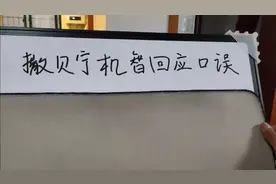 撒贝宁机智回应口误